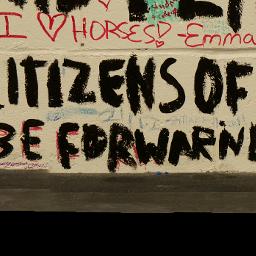 I ♡ HORSES! -Emma
ITIZENS OF
BE FORWARN